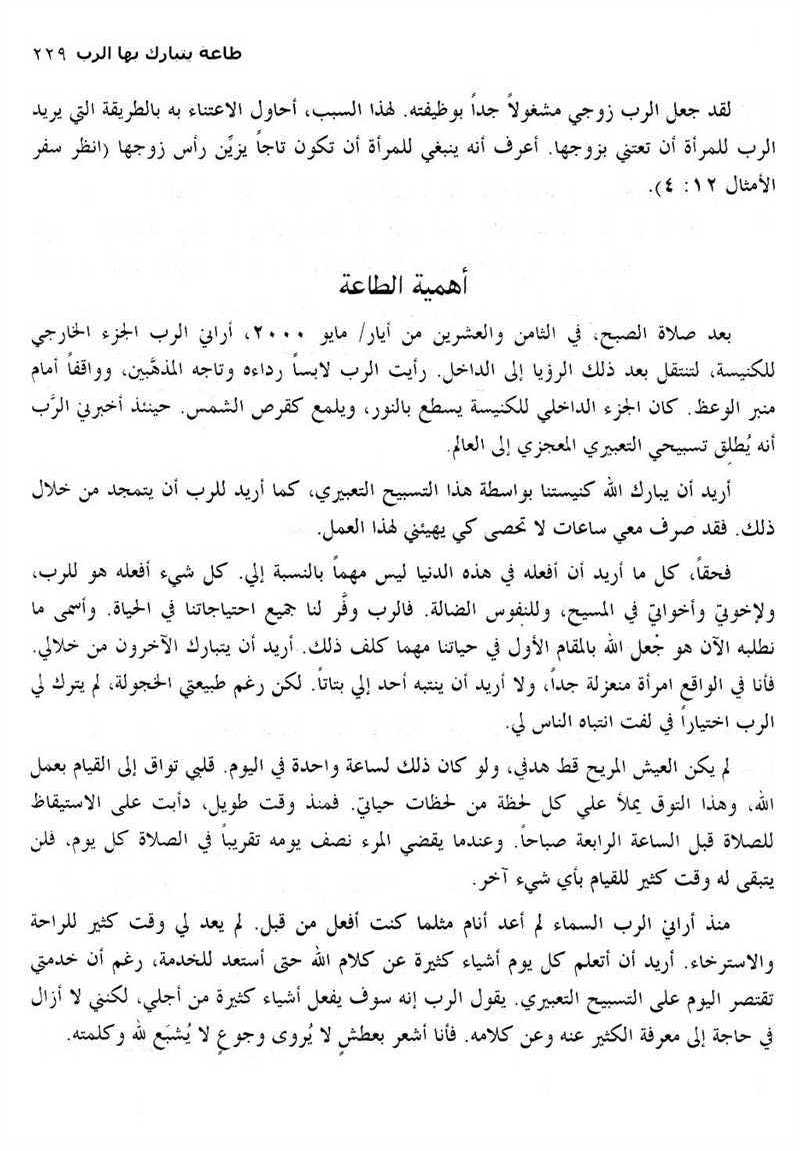 طاعة يتبارك بها الرب ٢٢٩
لقد جعل الرب زوجي مشغولاً جداً بوظيفته. لهذا السبب، أحاول الاعتناء به بالطريقة التي يريد
الرب للمرأة أن تعتني بزوجها. أعرف أنه ينبغي للمرأة أن تكون تاجاً يزيِّن رأس زوجها (انظر سفر
الأمثال ١٢: ٤).
أهمية الطاعة
بعد صلاة الصبح، في الثامن والعشرين من أيار/ مايو ٢٠٠٠، أراني الرب الجزء الخارجي
للكنيسة، لتنتقل بعد ذلك الرؤيا إلى الداخل. رأيت الرب لابساً رداءه وتاجه المذهَّبين، وواقفاً أمام
منبر الوعظ. كان الجزء الداخلي للكنيسة يسطع بالنور، ويلمع كقرص الشمس. حينئذ أخبرني الرَّب
أنه يُطلِق تسبيحي التعبيري المعجزي إلى العالم.
أريد أن يبارك الله كنيستنا بواسطة هذا التسبيح التعبيري، كما أريد للرب أن يتمجد من خلال
ذلك. فقد صرف معي ساعات لا تحصى كي يهيئني لهذا العمل.
فحقاً، كل ما أريد أن أفعله في هذه الدنيا ليس مهماً بالنسبة إلي. كل شيء أفعله هو للرب،
ولإخوتي وأخواتي في المسيح، وللنفوس الضالة. فالرب وفَّر لنا جميع احتياجاتنا في الحياة. وأسمى ما
نطلبه الآن هو جْعل الله بالمقام الأول في حياتنا مهما كلف ذلك. أريد أن يتبارك الآخرون من خلالي.
فأنا في الواقع امرأة منعزلة جداً، ولا أريد أن ينتبه أحد إلي بتاتاً. لكن رغم طبيعتي الخجولة، لم يترك لي
الرب اختياراً في لفت انتباه الناس لي.
لم يكن العيش المريح قط هدفي، ولو كان ذلك لساعة واحدة في اليوم. قلبي تواق إلى القيام بعمل
الله، وهذا التوق يملأ علي كل لحظة من لحظات حياتي. فمنذ وقت طويل، دأبت على الاستيقاظ
للصلاة قبل الساعة الرابعة صباحاً. وعندما يقضي المرء نصف يومه تقريباً في الصلاة كل يوم، فلن
يتبقى له وقت كثير للقيام بأي شيء آخر.
منذ أراني الرب السماء لم أعد أنام مثلما كنت أفعل من قبل. لم يعد لي وقت كثير للراحة
والاسترخاء. أريد أن أتعلم كل يوم أشياء كثيرة عن كلام الله حتى أستعد للخدمة، رغم أن خدمتي
تقتصر اليوم على التسبيح التعبيري. يقول الرب إنه سوف يفعل أشياء كثيرة من أجلي، لكنني لا أزال
في حاجة إلى معرفة الكثير عنه وعن كلامه. فأنا أشعر بعطشٍ لا يُروى وجوعٍ لا يُشبَع لله وكلمته.